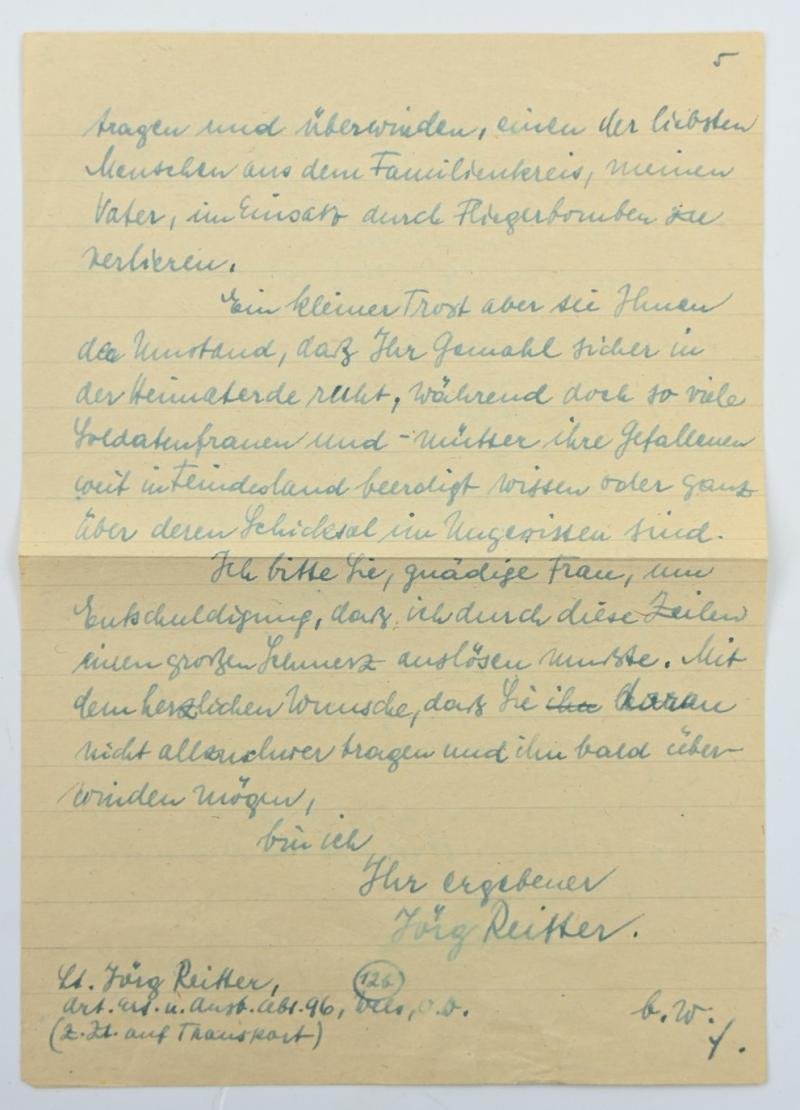 5
tragen und überwinden, einen der liebsten
Menschen aus dem Familienkreis, meinen
Vater, im Einsatz durch Fliegerbomben zu
verlieren.
Ein kleiner Trost aber sei Ihnen
der Umstand, daß Ihr Gemahl sicher in
der Heimaterde ruht, während doch so viele
Soldatenfrauen und -mütter ihre Gefallenen
weit in Feindesland beerdigt wissen oder ganz
über deren Schicksal im Ungewissen sind.
Ich bitte Sie, gnädige Frau, um
Entschuldigung, daß ich durch diese Zeilen
einen großen Schmerz auslösen mußte. Mit
dem herzlichen Wunsche, daß Sie ihn daran
nicht allzuschwer tragen und ihn bald über-
winden mögen,
bin ich
Ihr ergebener
Jörg Reitter.
Lt. Jörg Reitter,
Art. Ers. u. Ausb. Abt. 96, Wels, O.D.
(12b)
(z. Zt. auf Transport)
b. w.